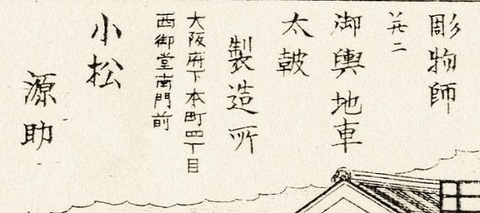 彫物師
并ニ
御輿地車
太皷
製造所
大阪府下本町四丁目
西御堂南門前
小松
源助